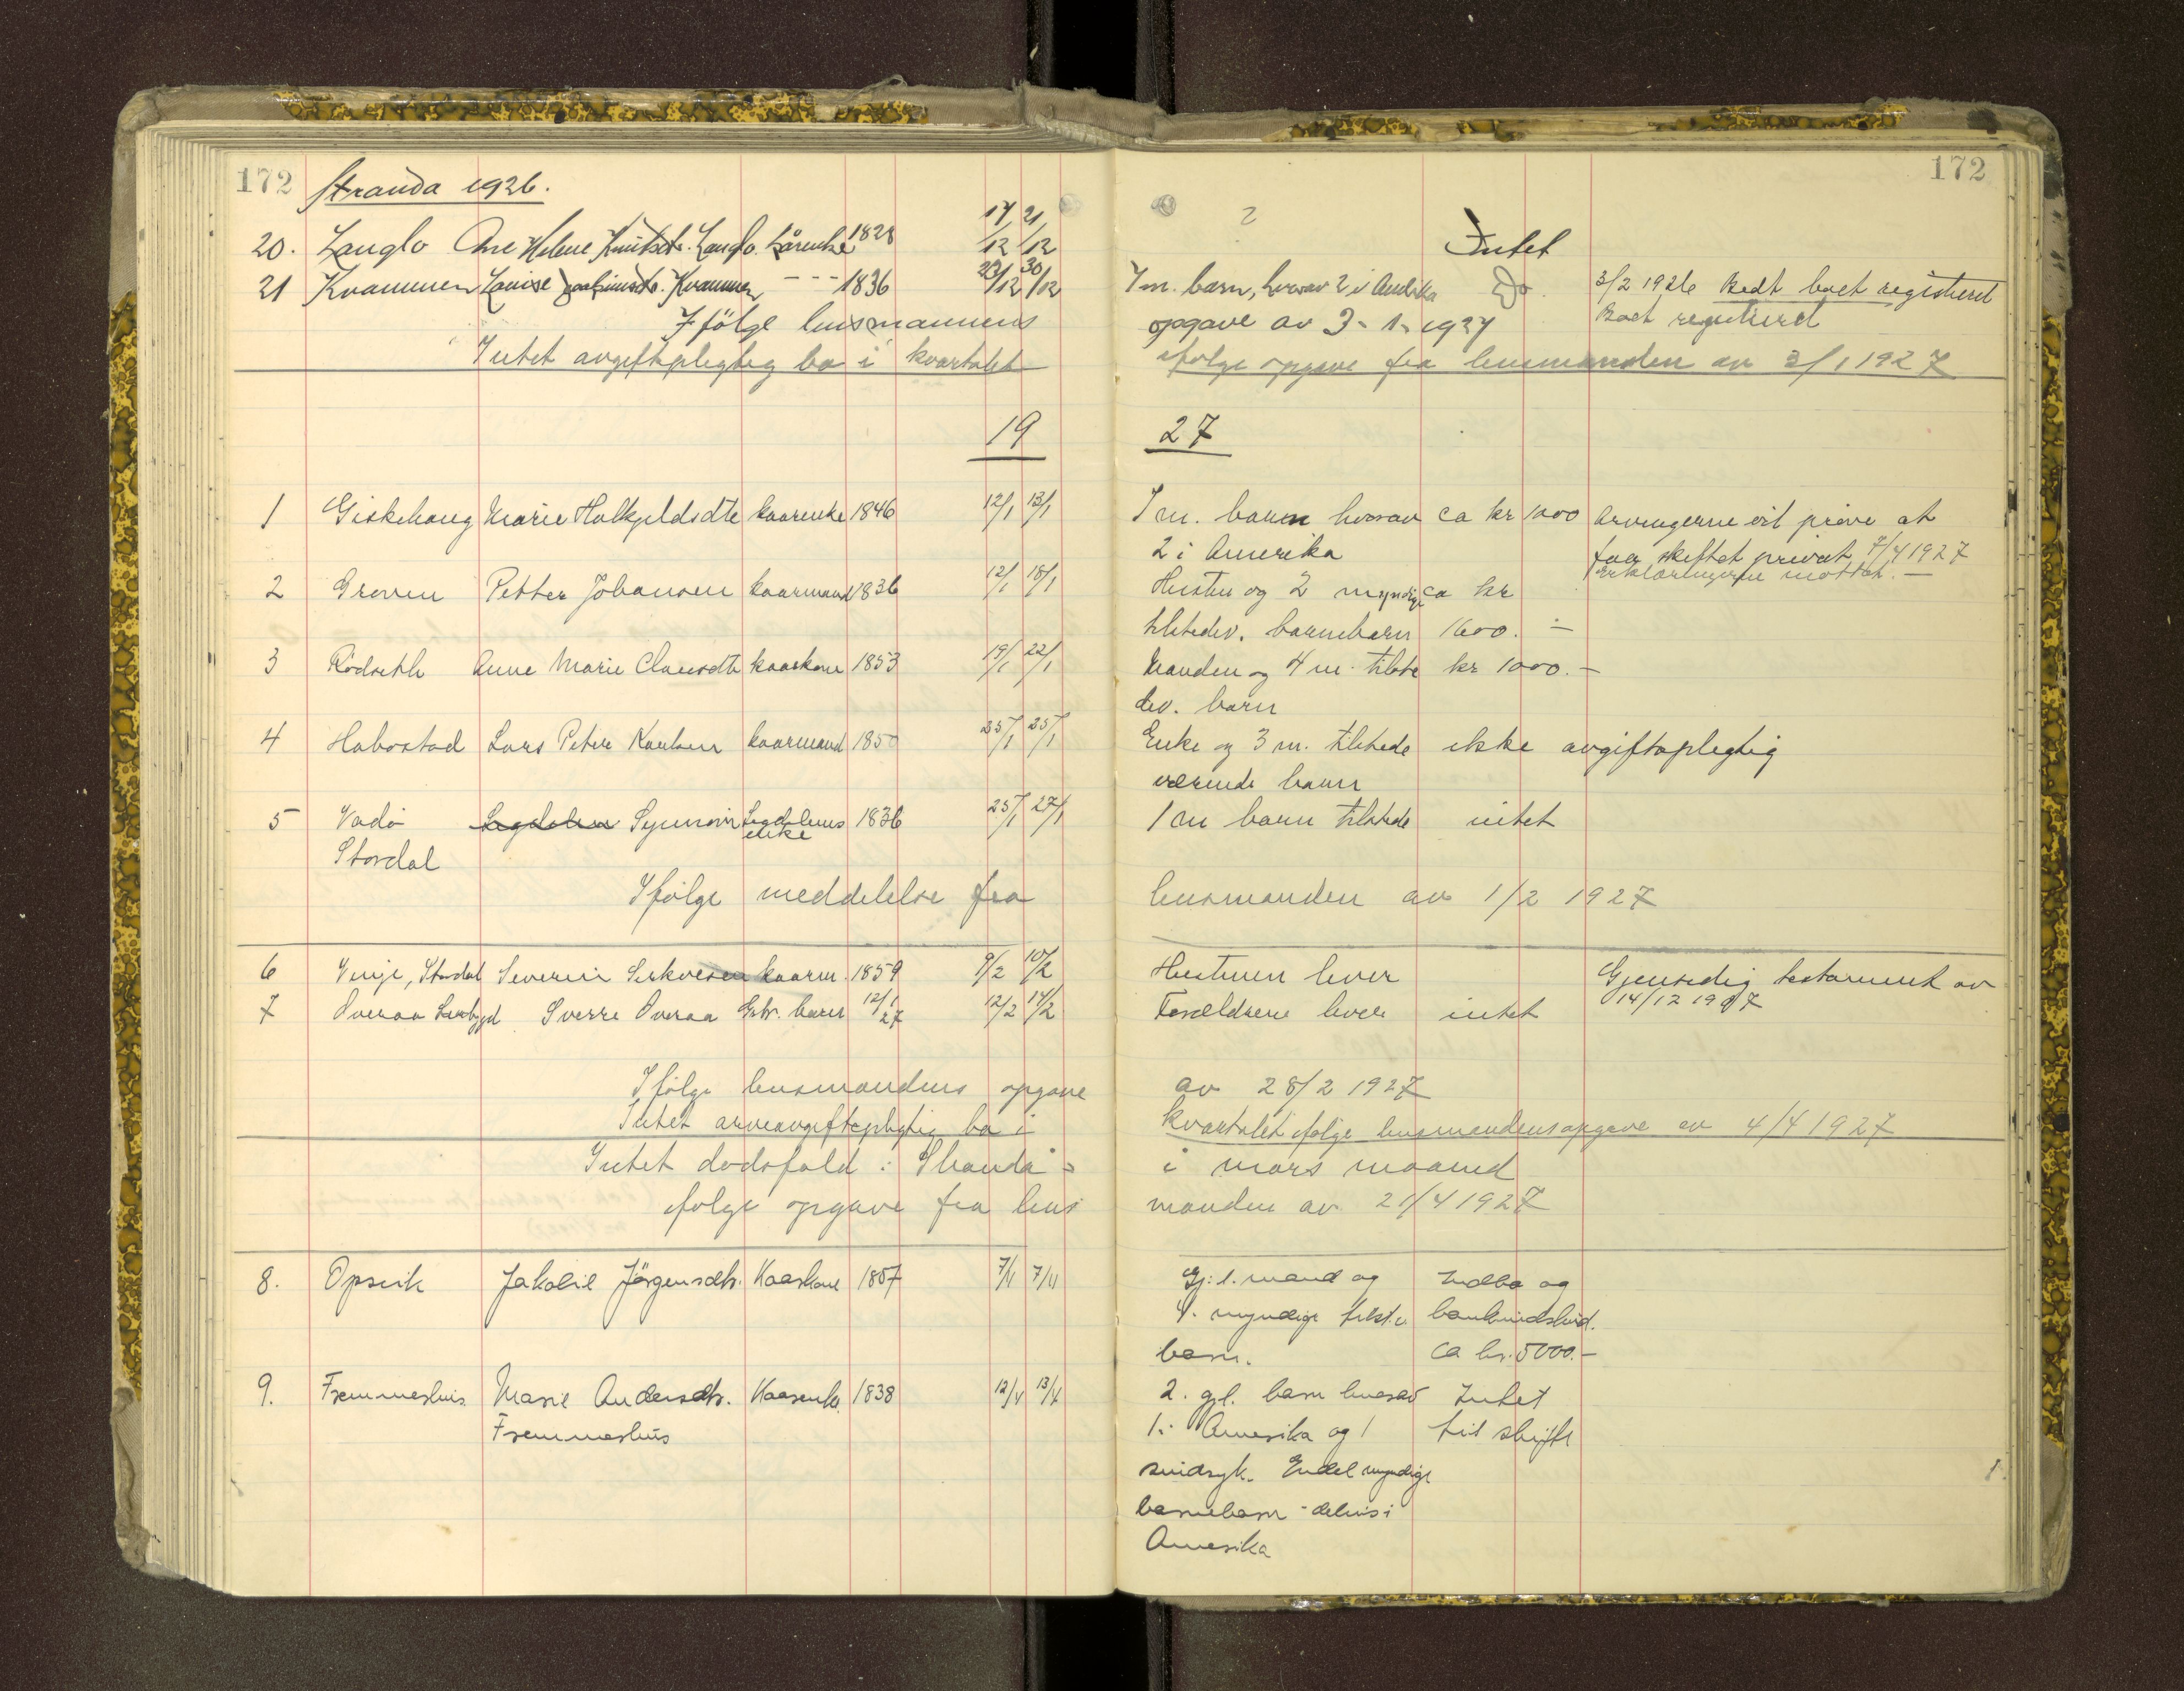 172 Stranda 1926. 172
17/ 21/
20. Langlo Ane Helene Knutsdtr. Langlo kårenke 1828 12 12 2 Intet
21 Kvammen Lovise Kvammen - - - 1836 23/12 30/12 7 m. barn, hvorav 2 i Amerika Do. 3/2 1926 bedt boet registreret
Ifölge lensmannens opgave av 3-1-1927 Boet registrerd
Intet avgiftspligtig bo i kvartalet ifølge opgave fra lensmanden av 3/1 1927
19 27
1 Giskehaug Marie Halkjeldsdtr kaarenke 1846 12/1 13/1 7 m. barn hvorav ca kr 1000 Arvingerne vil prøve at
2 i Amerika faa skiftet privat 7/4 1927
erklæringerne mottat. —
2 Groven Petter Johansen kaarmand 1836 12/1 18/1 Hustru og 2 myndige ca kr
tilstedev. barnebarn 1600. —
3 Rödseth Anne Marie Clausdtr kaarkone 1853 19/1 22/1 Manden og 4 m. tilste kr 1000. —
dev. barn
4 Habostad Lars Peter Karlsen kaarmand 1850 25/1 25/1 Enke og 3 m. tilstede ikke avgiftspligtig
værende barn
5 Vadö Synnöve Legdelems 1836 25/1 27/1 1 m barn tilstede intet
enke
Stordal
Ifölge meddelelse fra lensmanden av 1/2 1927
6 Vinje, Stordal Severin Sekvesen kaarm. 1859 9/2 10/2 Hustruen lever Gjensidig testament av
14/12 1907
7 Överaa Sverre Överaa Gbr. barn 12/1 27 12/2 14/2 Forældrene lever intet
Ifölge lensmandens opgave av 28/2 1927
Intet arveavgiftspligtig bo i kvartalet ifølge lensmandens opgave av 4/4 1927
Intet dødsfald i Stranda i mars maaned
ifølge opgave fra lens manden av 21/4 1927
8. Opsvik Jakobie Jörgensdtr. Kaarkone 1857 7/4 7/4 Gj. l. mand og Indbo og
4. myndige tilst.v. bankindskud.
barn. ca kr. 5000.—
9. Fremmerhus Marie Andersdtr. Kaarenke 1838 12/4 13/4 2. gjl. barn hvorav Intet
Fremmerhus 1 i Amerika og 1 til skifte
sindsyk. Endel myndige
barnebarn - delvis i
Amerika